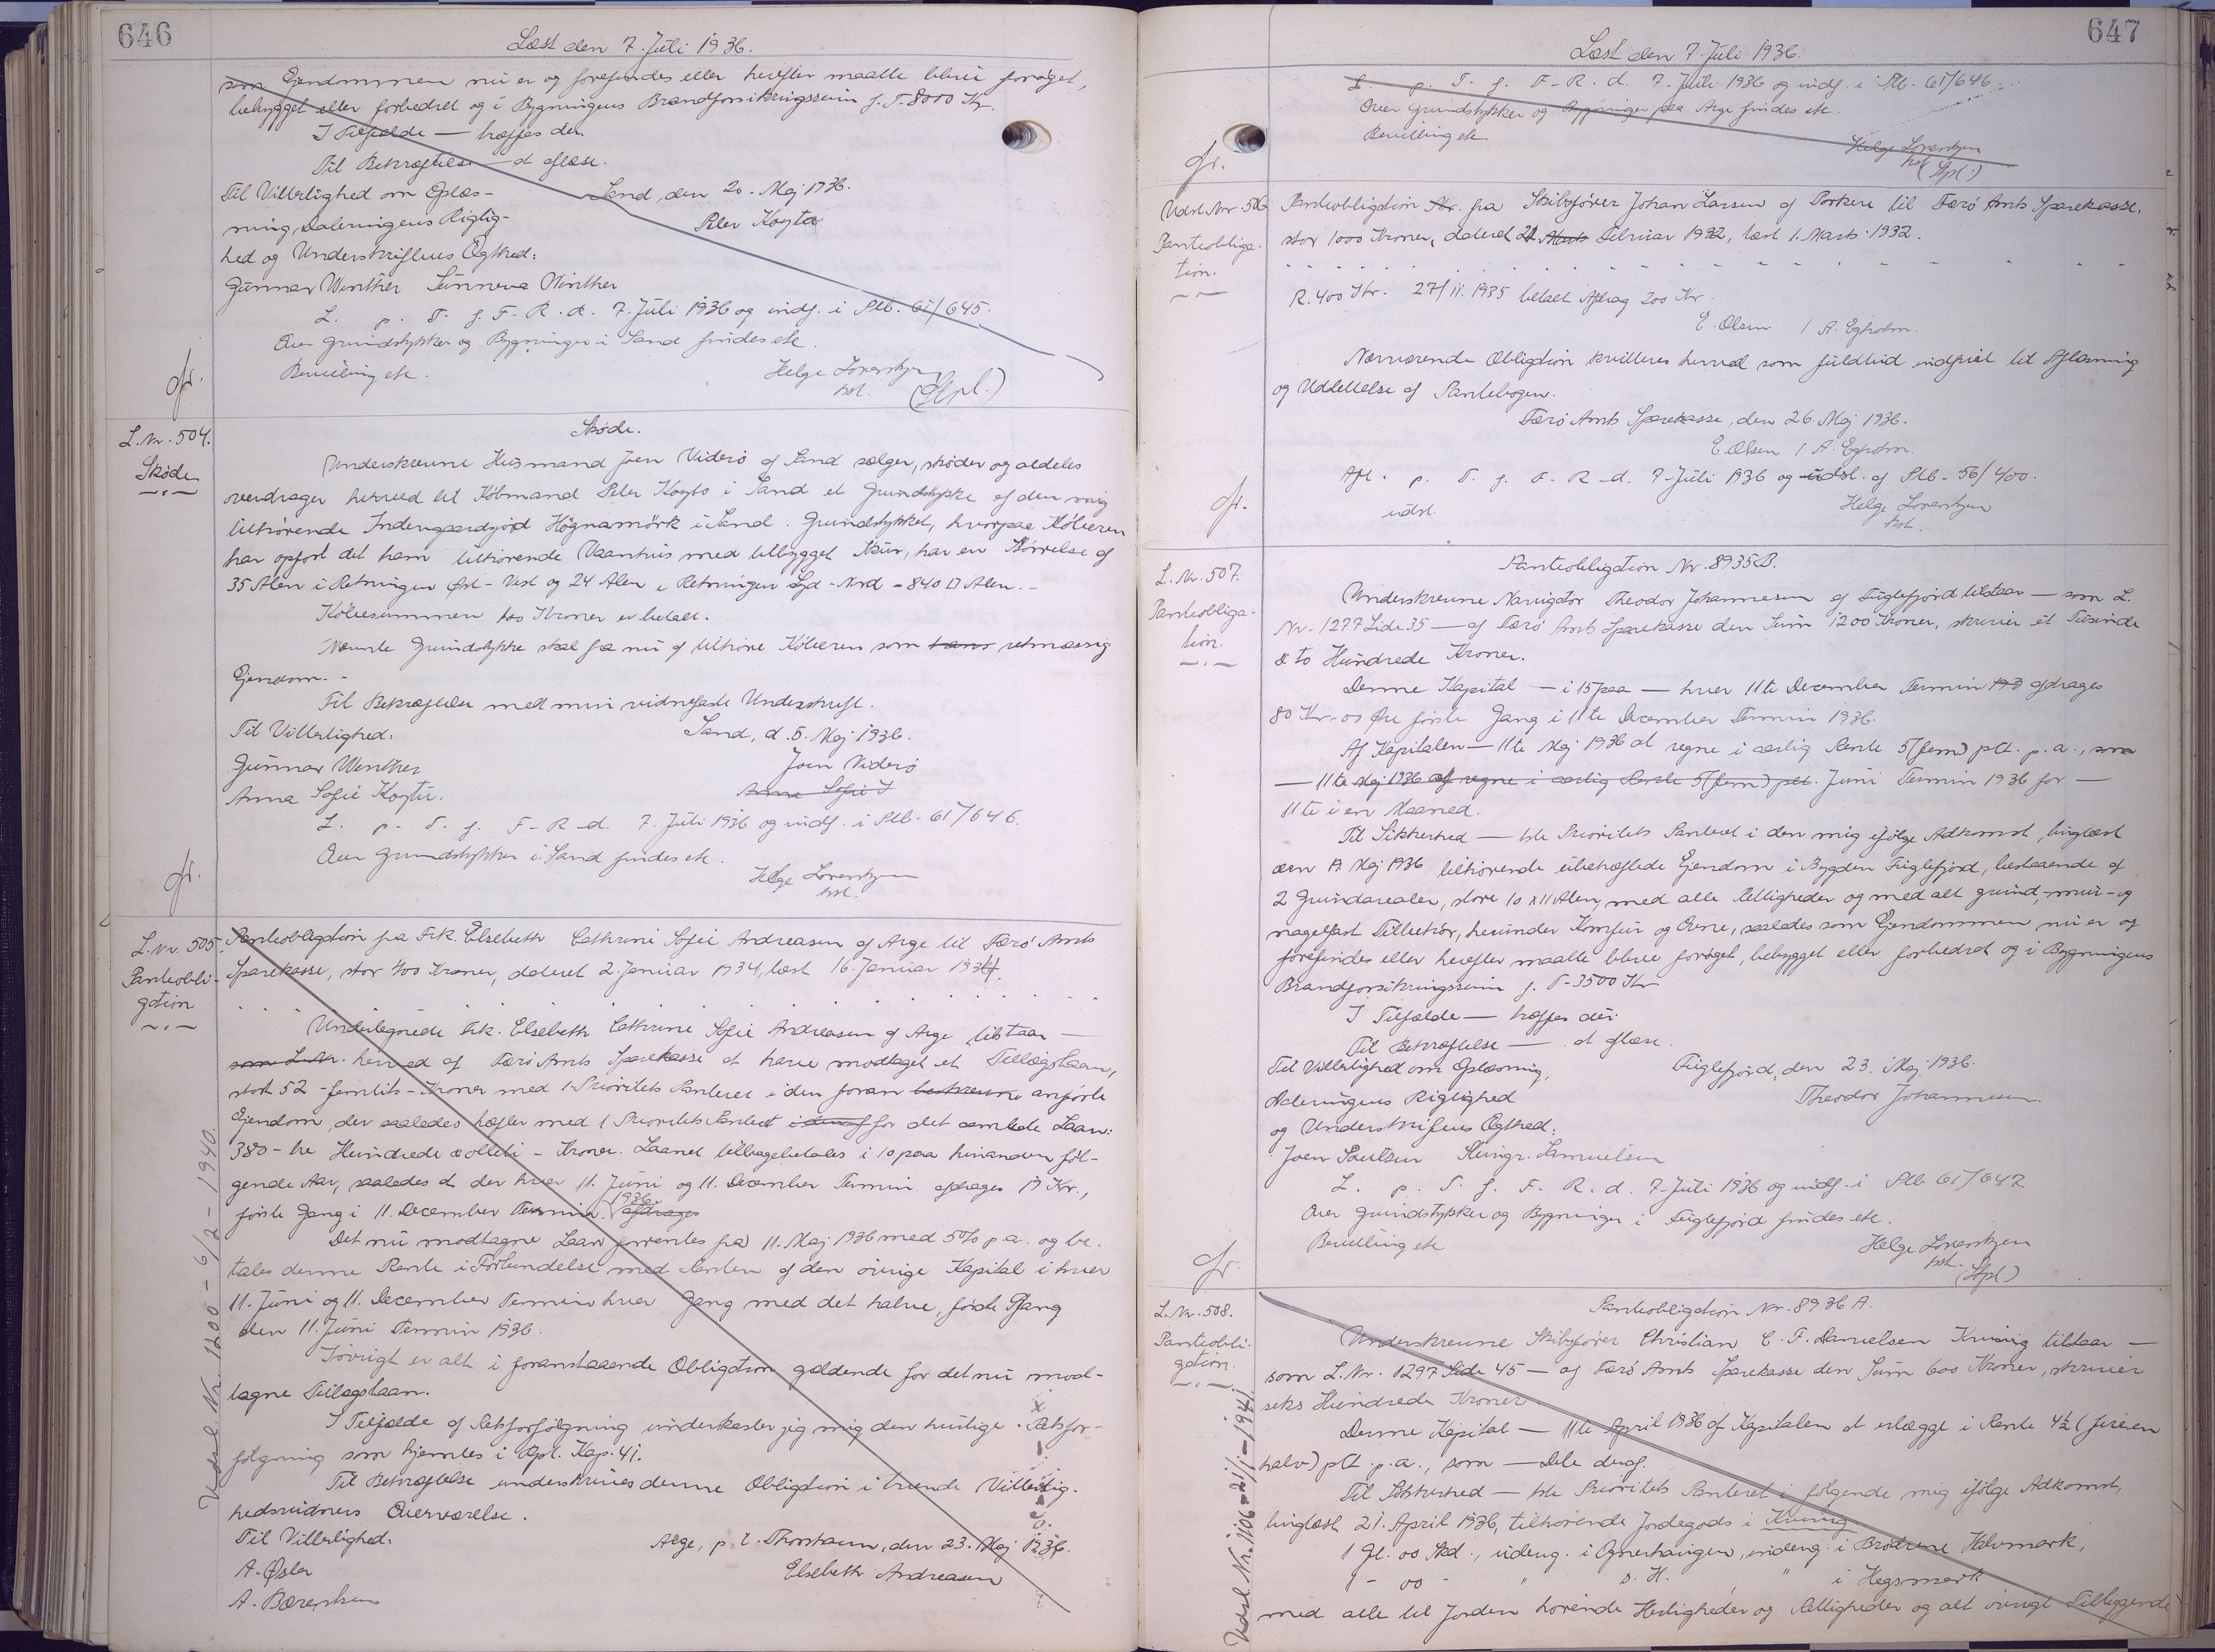 646
Læst den 7. Juli 1936.
som Ejendommen nu er og forefindes eller herefter maatte blive forøget,
bebygget eller forbedret og i Bygningens Brandforsikringssum f. T. 8000 Kr.
I Tilfælde — træffes der.
Til Bekræftelse — at aflæse.
Til Vitterlighed om Oplæs-
Sand, den 20. Maj 1936.
ning, Dateringens Rigtig-
Peter Koyta
hed og Underskriftens Ægthed:
Gunnar Winther Sunneva Winther
L. p. T. f. F. R. d. 7. Juli 1936 og indf. i Ptb. 61/645.
Over Grundstykker og Bygninger i Sand findes etc.
Bevilling etc.
Helge Lorentzen
kst. (Stpl.)
gr.
L. Nr. 504.
Skøde
Skøde.
Underskrevne Husmand Joen Viderø af Sand sælger, skøder og aldeles
overdrager herved til Købmand Peter Koyto i Sand et Grundstykke af den mig
tilhørende Indengaardsjord Høgnamørk i Sand. Grundstykket, hvorpaa Køberen
har opført det ham tilhørende Vaanhus med tilbygget Skur, har en Størrelse af
35 Alen i Retningen Øst - Vest og 24 Alen i Retningen Syd - Nord = 840 □ Alen. -
Købesummen 100 Kroner er betalt.
Nævnte Grundstykke skal fra nu af tilhøre Køberen som hans retmæssig
Ejendom. -
Til Bekræftelse med min vidnefaste Underskrift.
Til Vitterlighed:
Sand, d. 5. Maj 1936.
Gunnar Winther
Joen Viderø
Anna Sofie Koytu.
Anna Sofie J
L. p. T. f. F. R. d. 7. Juli 1936 og indf. i Ptb. 61/646.
Over Grundstykker i Sand findes etc.
Helge Lorentzen
kst.
gr.
L. Nr. 505.
Panteobli-
gation
Panteobligation fra Frk. Elsebeth Cathrine Sofie Andreasen af Arge til Færø Amts
Sparekasse, stor 400 Kroner, dateret 2. Januar 1934, læst 16. Januar 1934.
Undertegnede Frk. Elsebeth Cathrine Sofie Andreasen af Arge tilstaar —
som L. Nr. herved af Færø Amts Sparekasse at have modtaget et Tillægslaan,
stort 52 - femtito - Kroner med 1. Prioritets Panteret i den foran beskrevne anførte
Ejendom, der saaledes hæfter med 1 Prioritets Panteret i den f for det samlede Laan:
380 - tre Hundrede & otteti - Kroner. Laanet tilbagebetales i 10 paa hinanden føl-
gende Aar, saaledes at der hver 11. Juni og 11. December Termin afdrages 19 Kr.,
første Gang i 11. December Termin 1936. afdrages
Det nu modtagne Laan forrentes fra 11. Maj 1936 med 5% p.a. og be-
tales denne Rente i Forbindelse med Renten af den øvrige Kapital i hver
11. Juni og 11. December Termin hver Gang med det halve, første Gang
den 11. Juni Termin 1936.
Iøvrigt er alt i foranstaaende Obligation gældende for det nu mod-
tagne Tillægslaan.
I Tilfælde af Retsforfølgning underkaster jeg mig den hurtige Retsfor-
følgning som hjemles i Rpl. Kap. 41.
Til Bekræftelse underskrives denne Obligation i tvende Vitterlig-
hedsvidners Overværelse.
Til Vitterlighed:
Arge, p. t. Thorshavn, den 23. Maj 1936.
A. Øster
Elsebeth Andreasen
A. Bærentsen
Udsl. Nr. 1200 - 6/2 - 1940.
647
Læst den 7. Juli 1936.
L. p. T. f. F. R. d. 7. Juli 1936 og indf. i Ptb. 61/646.
Over Grundstykker og Bygninger paa Arge findes etc.
Bevilling etc.
Helge Lorentzen
kst (Stpl.)
gr.
Udsl. Nr. 506
Panteobliga-
tion.
Panteobligation Nr. fra Skibsfører Johan Larsen af Porkere til Færø Amts Sparekasse,
stor 1000 Kroner, dateret 21. Marts Februar 1932, læst 1. Marts 1932.
R. 400 Kr. 27/11. 1935 betalt Afdrag 200 Kr.
E. Olsen / A. Egholm.
Nærværende Obligation kvitteres herved som fuldtud indfriet til Aflæsning
og Udslettelse af Pantebogen.
Færø Amts Sparekasse, den 26. Maj 1936.
E Olsen / A. Egholm.
Afl. p. T. f. F. R. d. 7. Juli 1936 og udsl. af Ptb. 56/400.
udsl.
Helge Lorentzen
kst.
gr.
L. Nr. 507.
Panteobliga-
tion.
Panteobligation Nr. 8935 B.
Underskrevne Navigatør Theodor Johannesen af Fuglefjord tilstaar — som L.
Nr. 1277 Side 35 — af Færø Amts Sparekasse den Sum 1200 Kroner, skriver et Tusinde
& to Hundrede Kroner.
Denne Kapital — i 15 paa — hver 11te December Termin 193 afdrages
80 Kr. 00 Øre første Gang i 11te December Termin 1936.
Af Kapitalen — 11te Maj 1936 at regne i aarlig Rente 5 (fem) pCt. p.a., som
— 11te Maj 1936 af regne i aarlig Rente 5 (fem) pCt. Juni Termin 1936 for —
11te i en Maaned.
Til Sikkerhed — 1ste Prioritets Panteret i den mig ifølge Adkomst, tinglæst
den 19. Maj 1936 tilhørende ubehæftede Ejendom i Bygden Fuglefjord, bestaaende af
2 Grundarealer, store 10 x 11 Alen, med alle Rettigheder og med alt grund-, mur- og
nagelfast Tilbehør, herunder Komfur og Ovne, saaledes som Ejendommen nu er og
forefindes eller herefter maatte blive forøget, bebygget eller forbedret og i Bygningens
Brandforsikringssum f. T. 3500 Kr.
I Tilfælde — træffes der.
Til Bekræftelse — at aflæse.
Til Vitterlighed om Oplæsning,
Fuglefjord, den 23. Maj 1936.
Dateringens Rigtighed
Theodor Johannesen.
og Underskriftens Ægthed:
Joen Poulsen Steingr. Samuelsen
L. p. T. f. F. R. d. 7. Juli 1936 og indf. i Ptb 61/647
Over Grundstykker og Bygninger i Fuglefjord findes etc.
Bevilling etc
Helge Lorentzen
kst.
(Stpl.)
gr.
L. Nr. 508.
Panteobli-
gation.
Panteobligation Nr. 8936 A.
Underskrevne Skibsfører Christian C. F. Danielsen Kvivig tilstaar —
som L. Nr. 1297 Side 45 — af Færø Amts Sparekasse den Sum 600 Kroner, skriver
seks Hundrede Kroner.
Denne Kapital — 11te April 1936 af Kapitalen at erlægge i Rente 4½ (fire en
halv) pCt. p.a., som — Dele deraf.
Til Sikkerhed — 1ste Prioritets Panteret i følgende mig ifølge Adkomst,
tinglæst 21. April 1936, tilhørende Jordegods i Kvivig
1 Gl. 00 Skd., udeng. i Ognerhaugen, indeng. i Brødrene Halvmark,
1 - 00 - " s. H. " i Hegsmørk
med alle til Jorden hørende Herligheder og Rettigheder og alt øvrigt Tilliggende
Udsl. Nr. 1106 - 21/1 - 1941